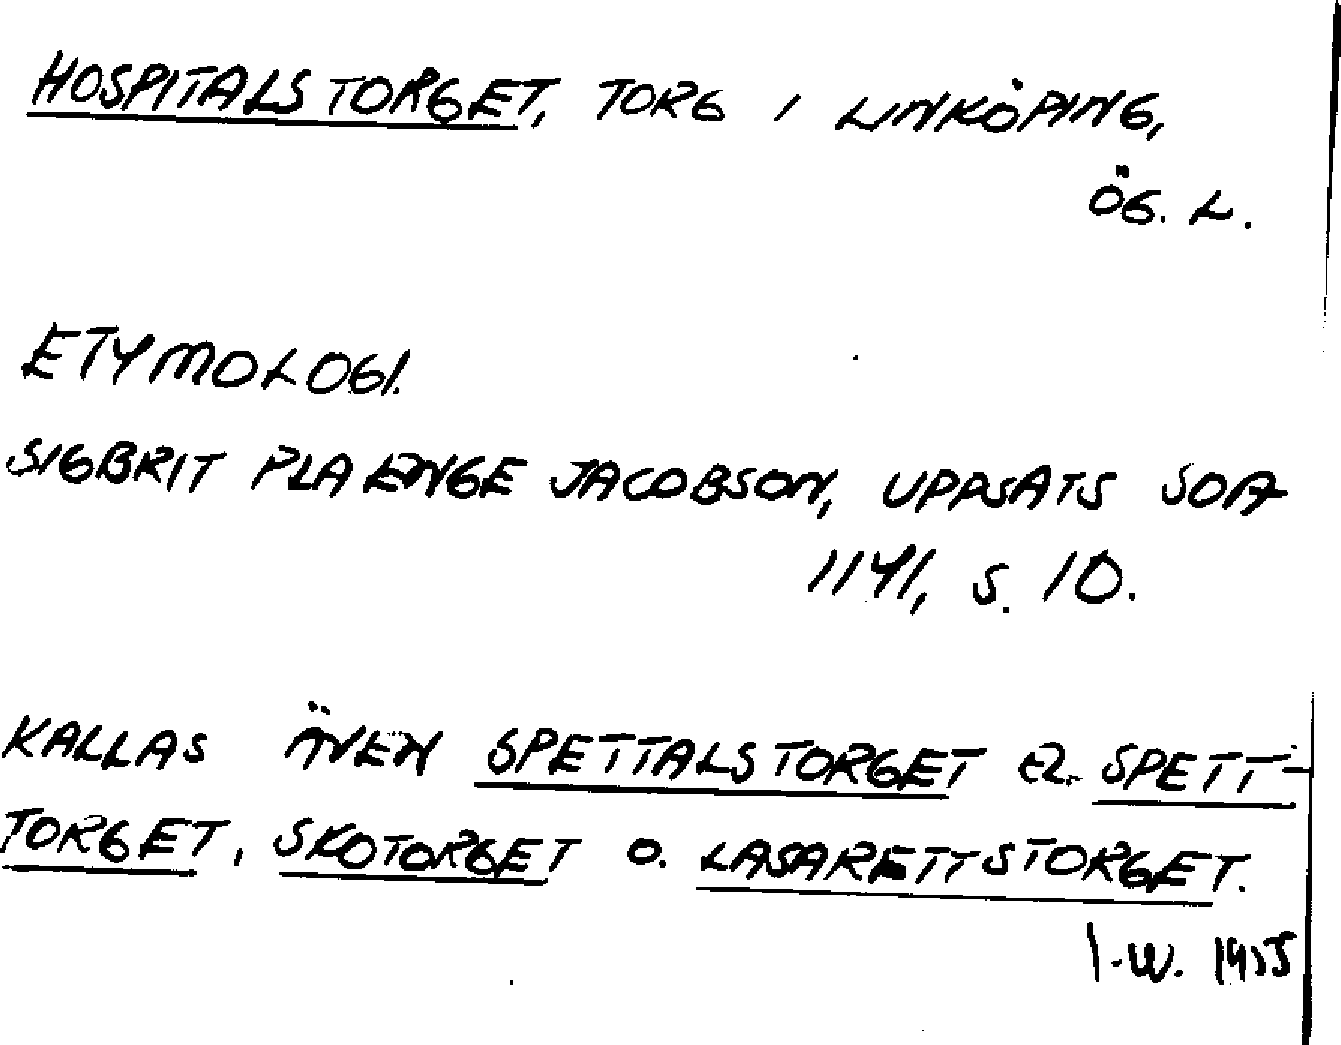 HOSPITALSTORGET, TORG I LINKÖPING,
ÖG. L.
ETYMOLOGI.
SIGBRIT PLAENGE JACOBSON, UPPSATS SOA
1141, S. 10.
KALLAS ÄVEN SPETTALSTORGET EL. SPETT-
TORGET, SKOTORGET O. LASARETTSTORGET.
I-W.